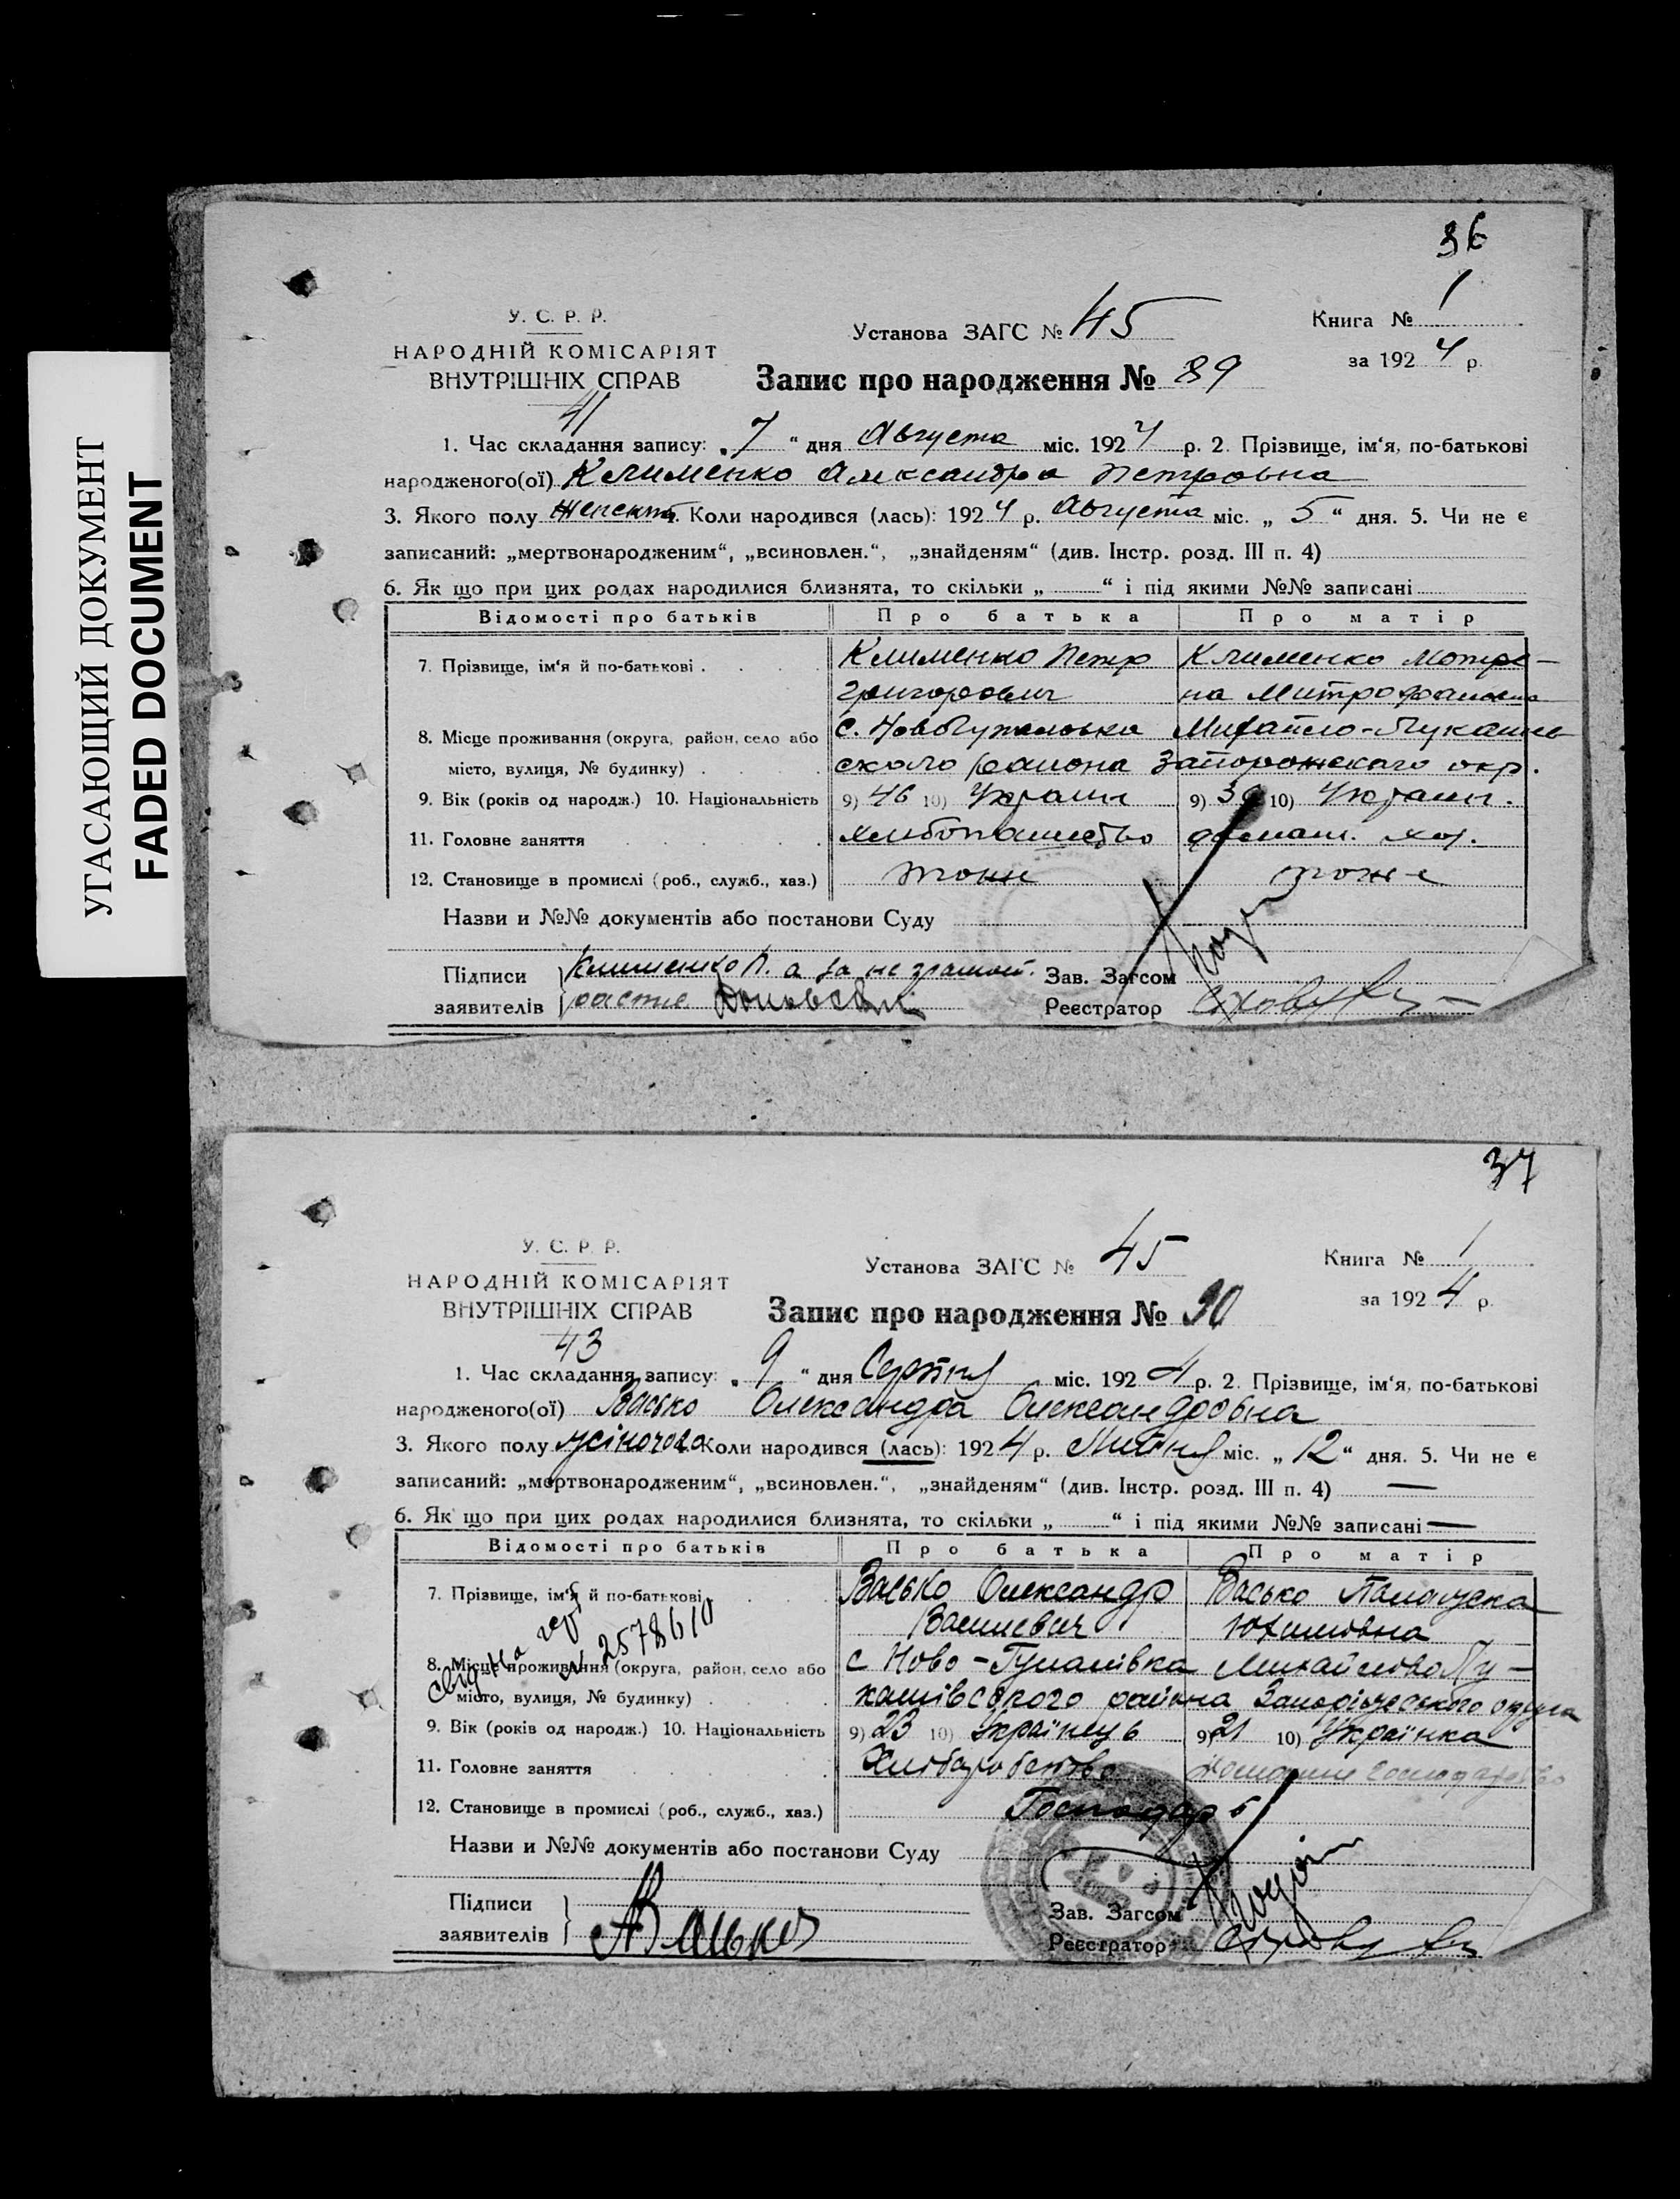 УГАСАЮЩИЙ ДОКУМЕНТ
FADED DOCUMENT
36
У. С. Р. Р.
НАРОДНІЙ КОМІСАРІЯТ
ВНУТРІШНІХ СПРАВ
41
Установа ЗАГС № 45
Запис про народження № 89
Книга № 1
за 1924 р.
1. Час складання запису: „7“ дня Августа міс. 1924 р. 2. Прізвище, ім‘я, по-батькові
народженого(ої) Клименко Александра Петровна
3. Якого полу Коли народився (лась): 1924 р. Августа міс. „5“ дня. 5. Чи не є
записаний: „мертвонародженим“, „всиновлен.“, „знайденям“ (див. Інстр. розд. III п. 4)
6. Як що при цих родах народилися близнята, то скільки „ “ і під якими №№ записані
Відомості про батьків Про батька Про матір
7. Прізвище, ім‘я й по-батькові . Клименко Петр Клименко Мотро-
Григорович на Митрофановна
8. Місце проживання (округа, район, село або с.
місто, вулиця, № будинку) . ского района Запорожского окр.
9. Вік (років од народж.) 10. Національність 9) 46 10) Украин 9) 10) Украин.
11. Головне заняття хлибопашество домаш. хоз.
12. Становище в промислі (роб., служб., хаз.) тоже
Назви и №№ документів або постанови Суду
Підписи Клименко П. а за не
заявителів
Зав. Загсом
Реєстратор
37
У. С. Р. Р.
НАРОДНІЙ КОМІСАРІЯТ
ВНУТРІШНІХ СПРАВ
43
Установа ЗАГС № 45
Запис про народження № 90
Книга № 1
за 1924 р.
1. Час складання запису: „9“ дня Серпня міс. 1924 р. 2. Прізвище, ім‘я, по-батькові
народженого(ої) Васько Олександра Олександровна
3. Якого полу жіночого Коли народився (лась): 1924 р. Липня міс. „12“ дня. 5. Чи не є
записаний: „мертвонародженим“, „всиновлен.“, „знайденям“ (див. Інстр. розд. III п. 4) —
6. Як що при цих родах народилися близнята, то скільки „ “ і під якими №№ записані —
Відомості про батьків Про батька Про матір
7. Прізвище, ім‘я й по-батькові . Васько Олександр Васько
Васильевич Юхимовна
№ 2578610
8. Місце проживання (округа, район, село або с Ново-Гупалівка Михайлово Лу-
місто, вулиця, № будинку) . кашівського района округа
9. Вік (років од народж.) 10. Національність 9) 23 10) Українець 9) 21 10) Українка
11. Головне заняття Хліборобство Домашнє господарство
12. Становище в промислі (роб., служб., хаз.) Господарь
Назви и №№ документів або постанови Суду
Підписи
заявителів АВасько
Зав. Загсом
Реєстратор